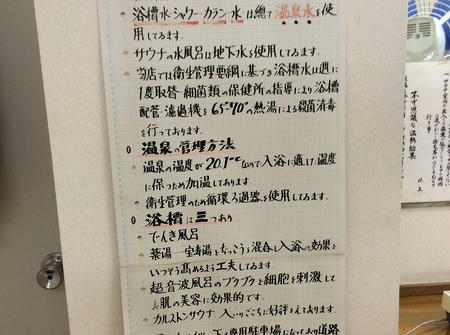 浴槽水・シャワー・カラン・水は總て温泉水を使
用してゐます。
サウナの水風呂は地下水を使用してゐます。
当店では衛生管理要綱に基づき浴槽水は週に
1度取替・細菌類の保健所の指導により浴槽
配管・濾過機を65°~70°の熱湯による殺菌消毒
を行っております。
温泉の管理方法
温泉の温度が20.1℃なので入浴に適した温度
に保つため加温しております。
衛生管理のため循環ろ過器を使用してゐます。
浴槽は三つあり
でんき風呂
薬湯 一宝寿湯をちっこうと混合し入浴の効果を
いっそう高めるよう工夫してゐます
超音波風呂のブクブクと細胞を刺激して
お肌の美容に効果的です。
カルストンサウナ 入りごこちに好評をえております。
専用駐車場になっており道路
不可思議な温熱効果
以上